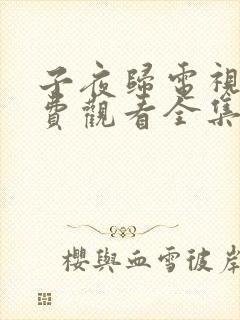 子夜歸電視
費觀看全集
櫻與血雪彼岸